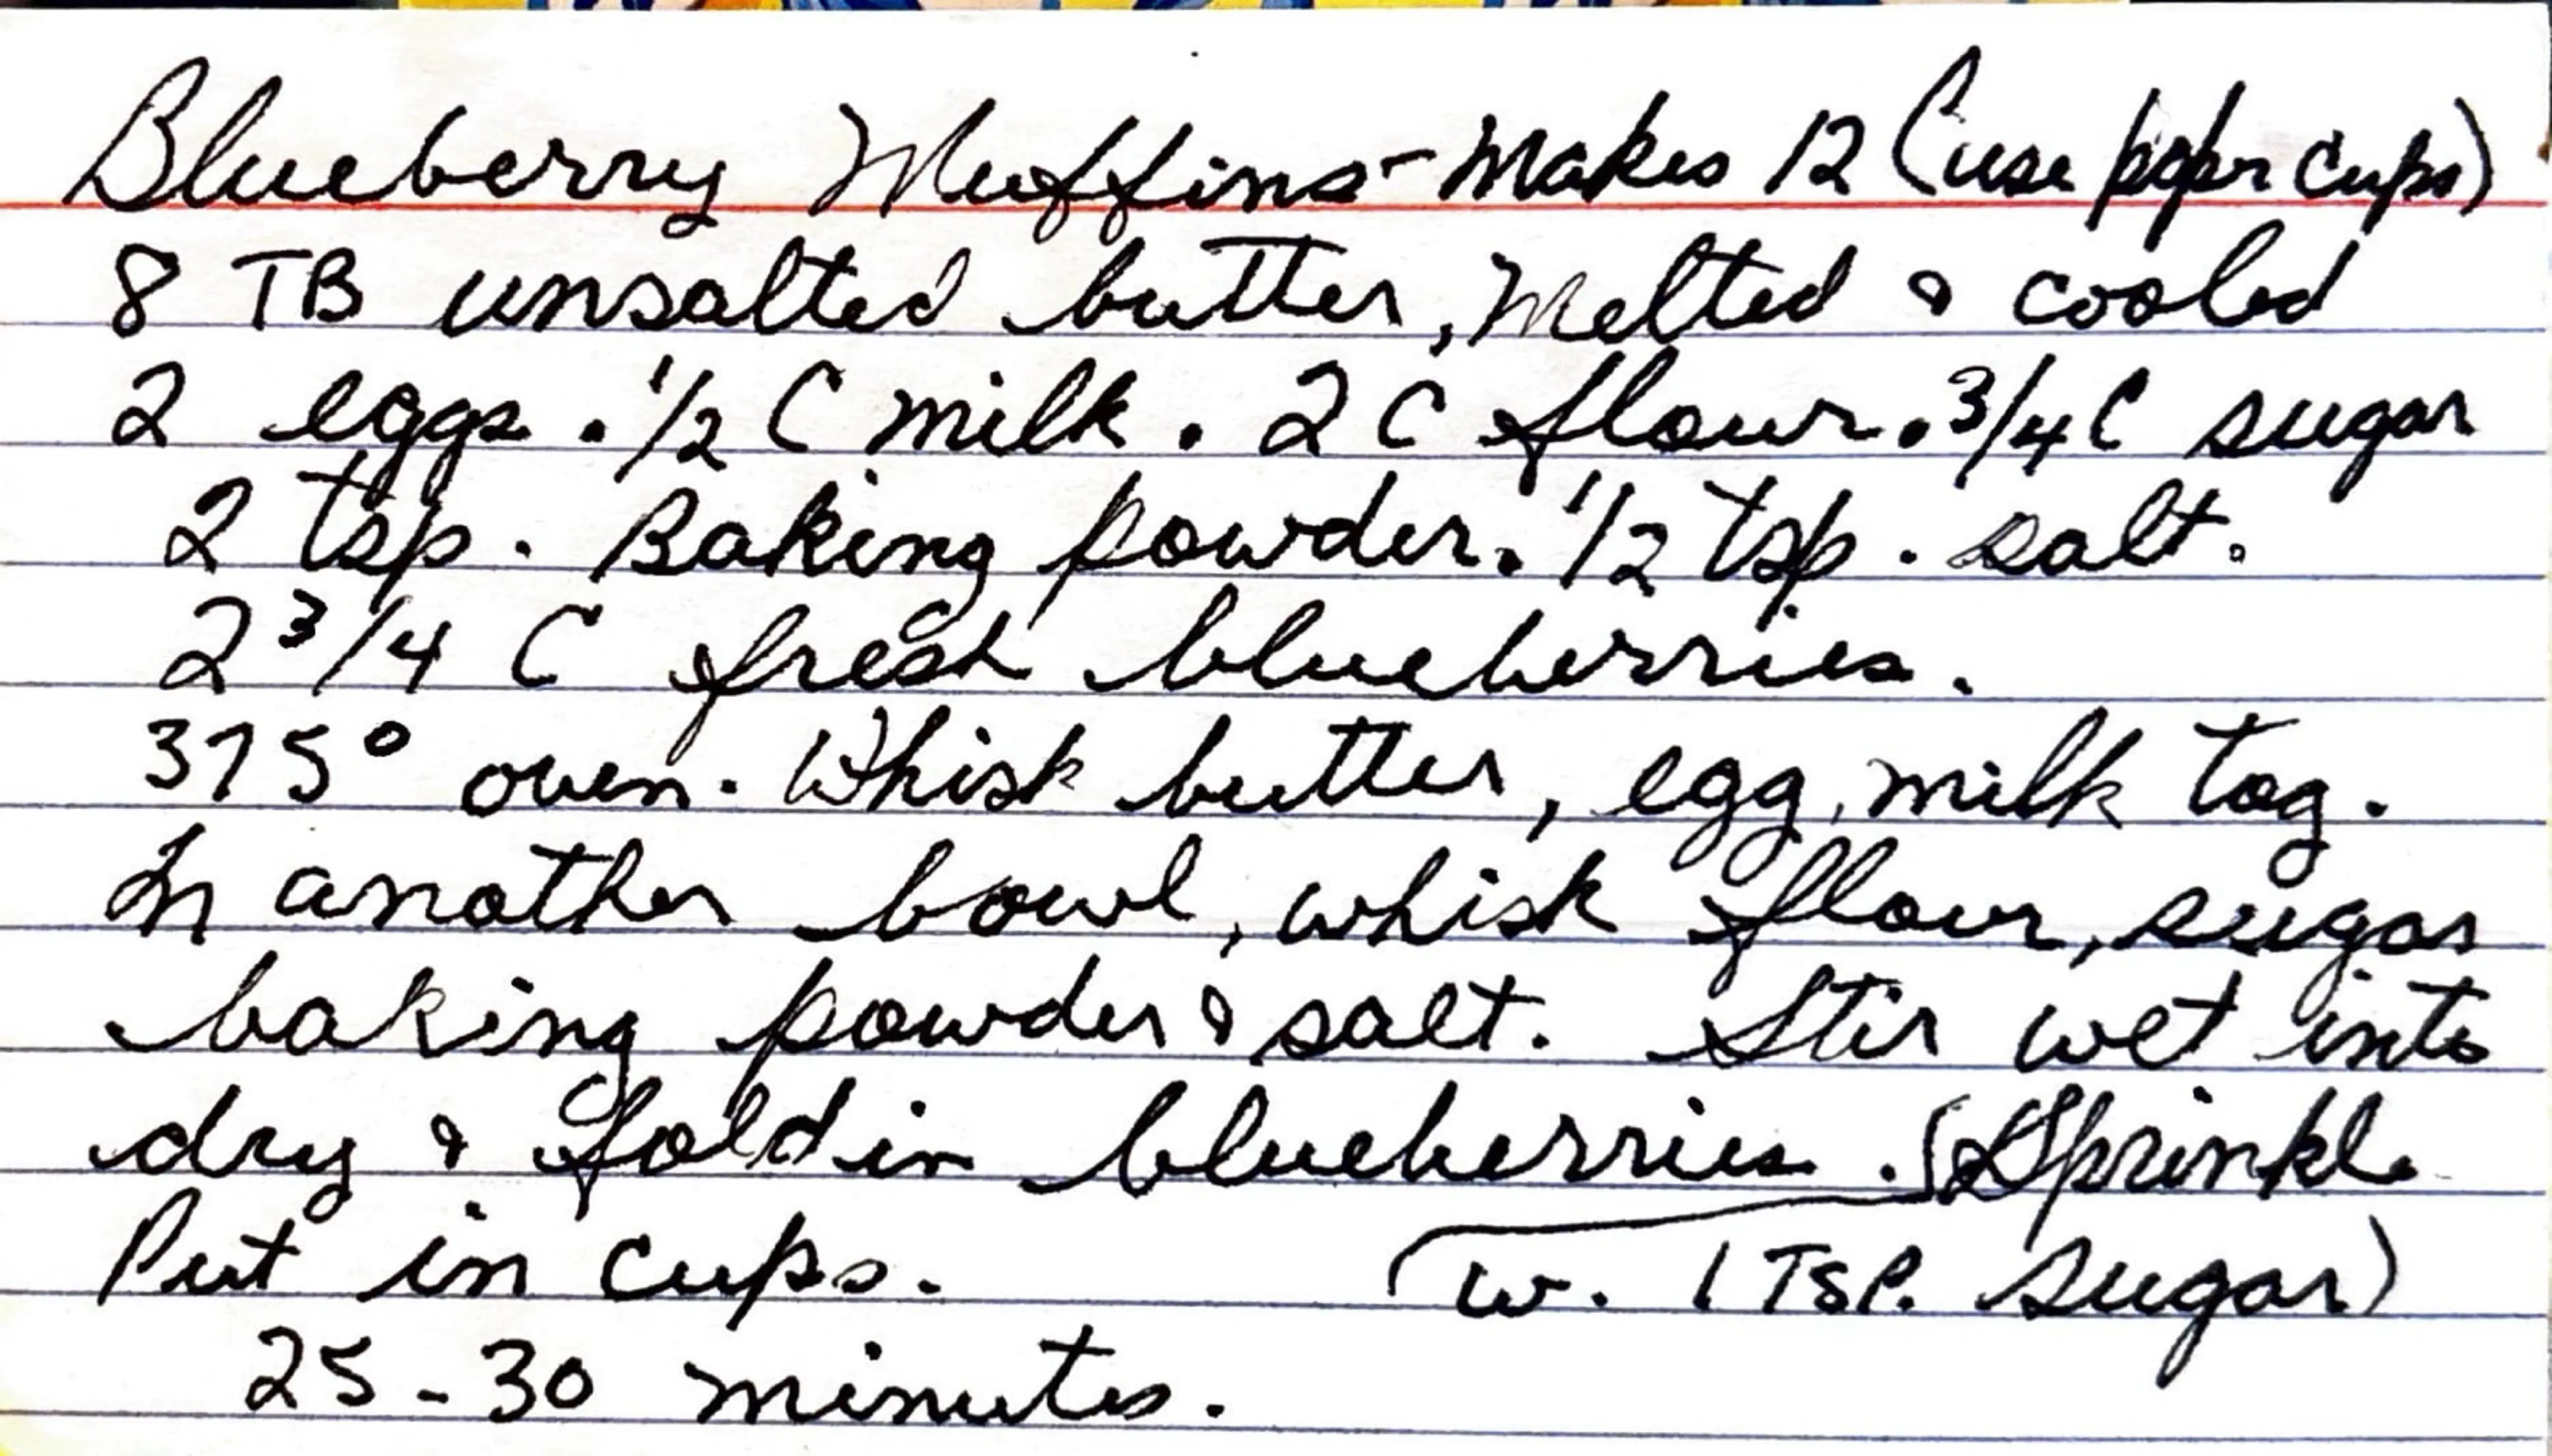 Blueberry Muffins - Makes 12 (use paper cups)
8 TB unsalted butter, Melted & cooled
2 eggs . 1/2 C milk . 2 C flour . 3/4 C sugar
2 tsp. Baking powder. 1/2 tsp. salt.
2 3/4 C fresh blueberries.
375° oven. Whisk butter, egg, milk tog.
In another bowl, whisk flour, sugar
baking powder & salt. Stir wet into
dry & fold in blueberries. (Sprinkle
Put in cups. w. 1 TSP. sugar)
25-30 minutes.